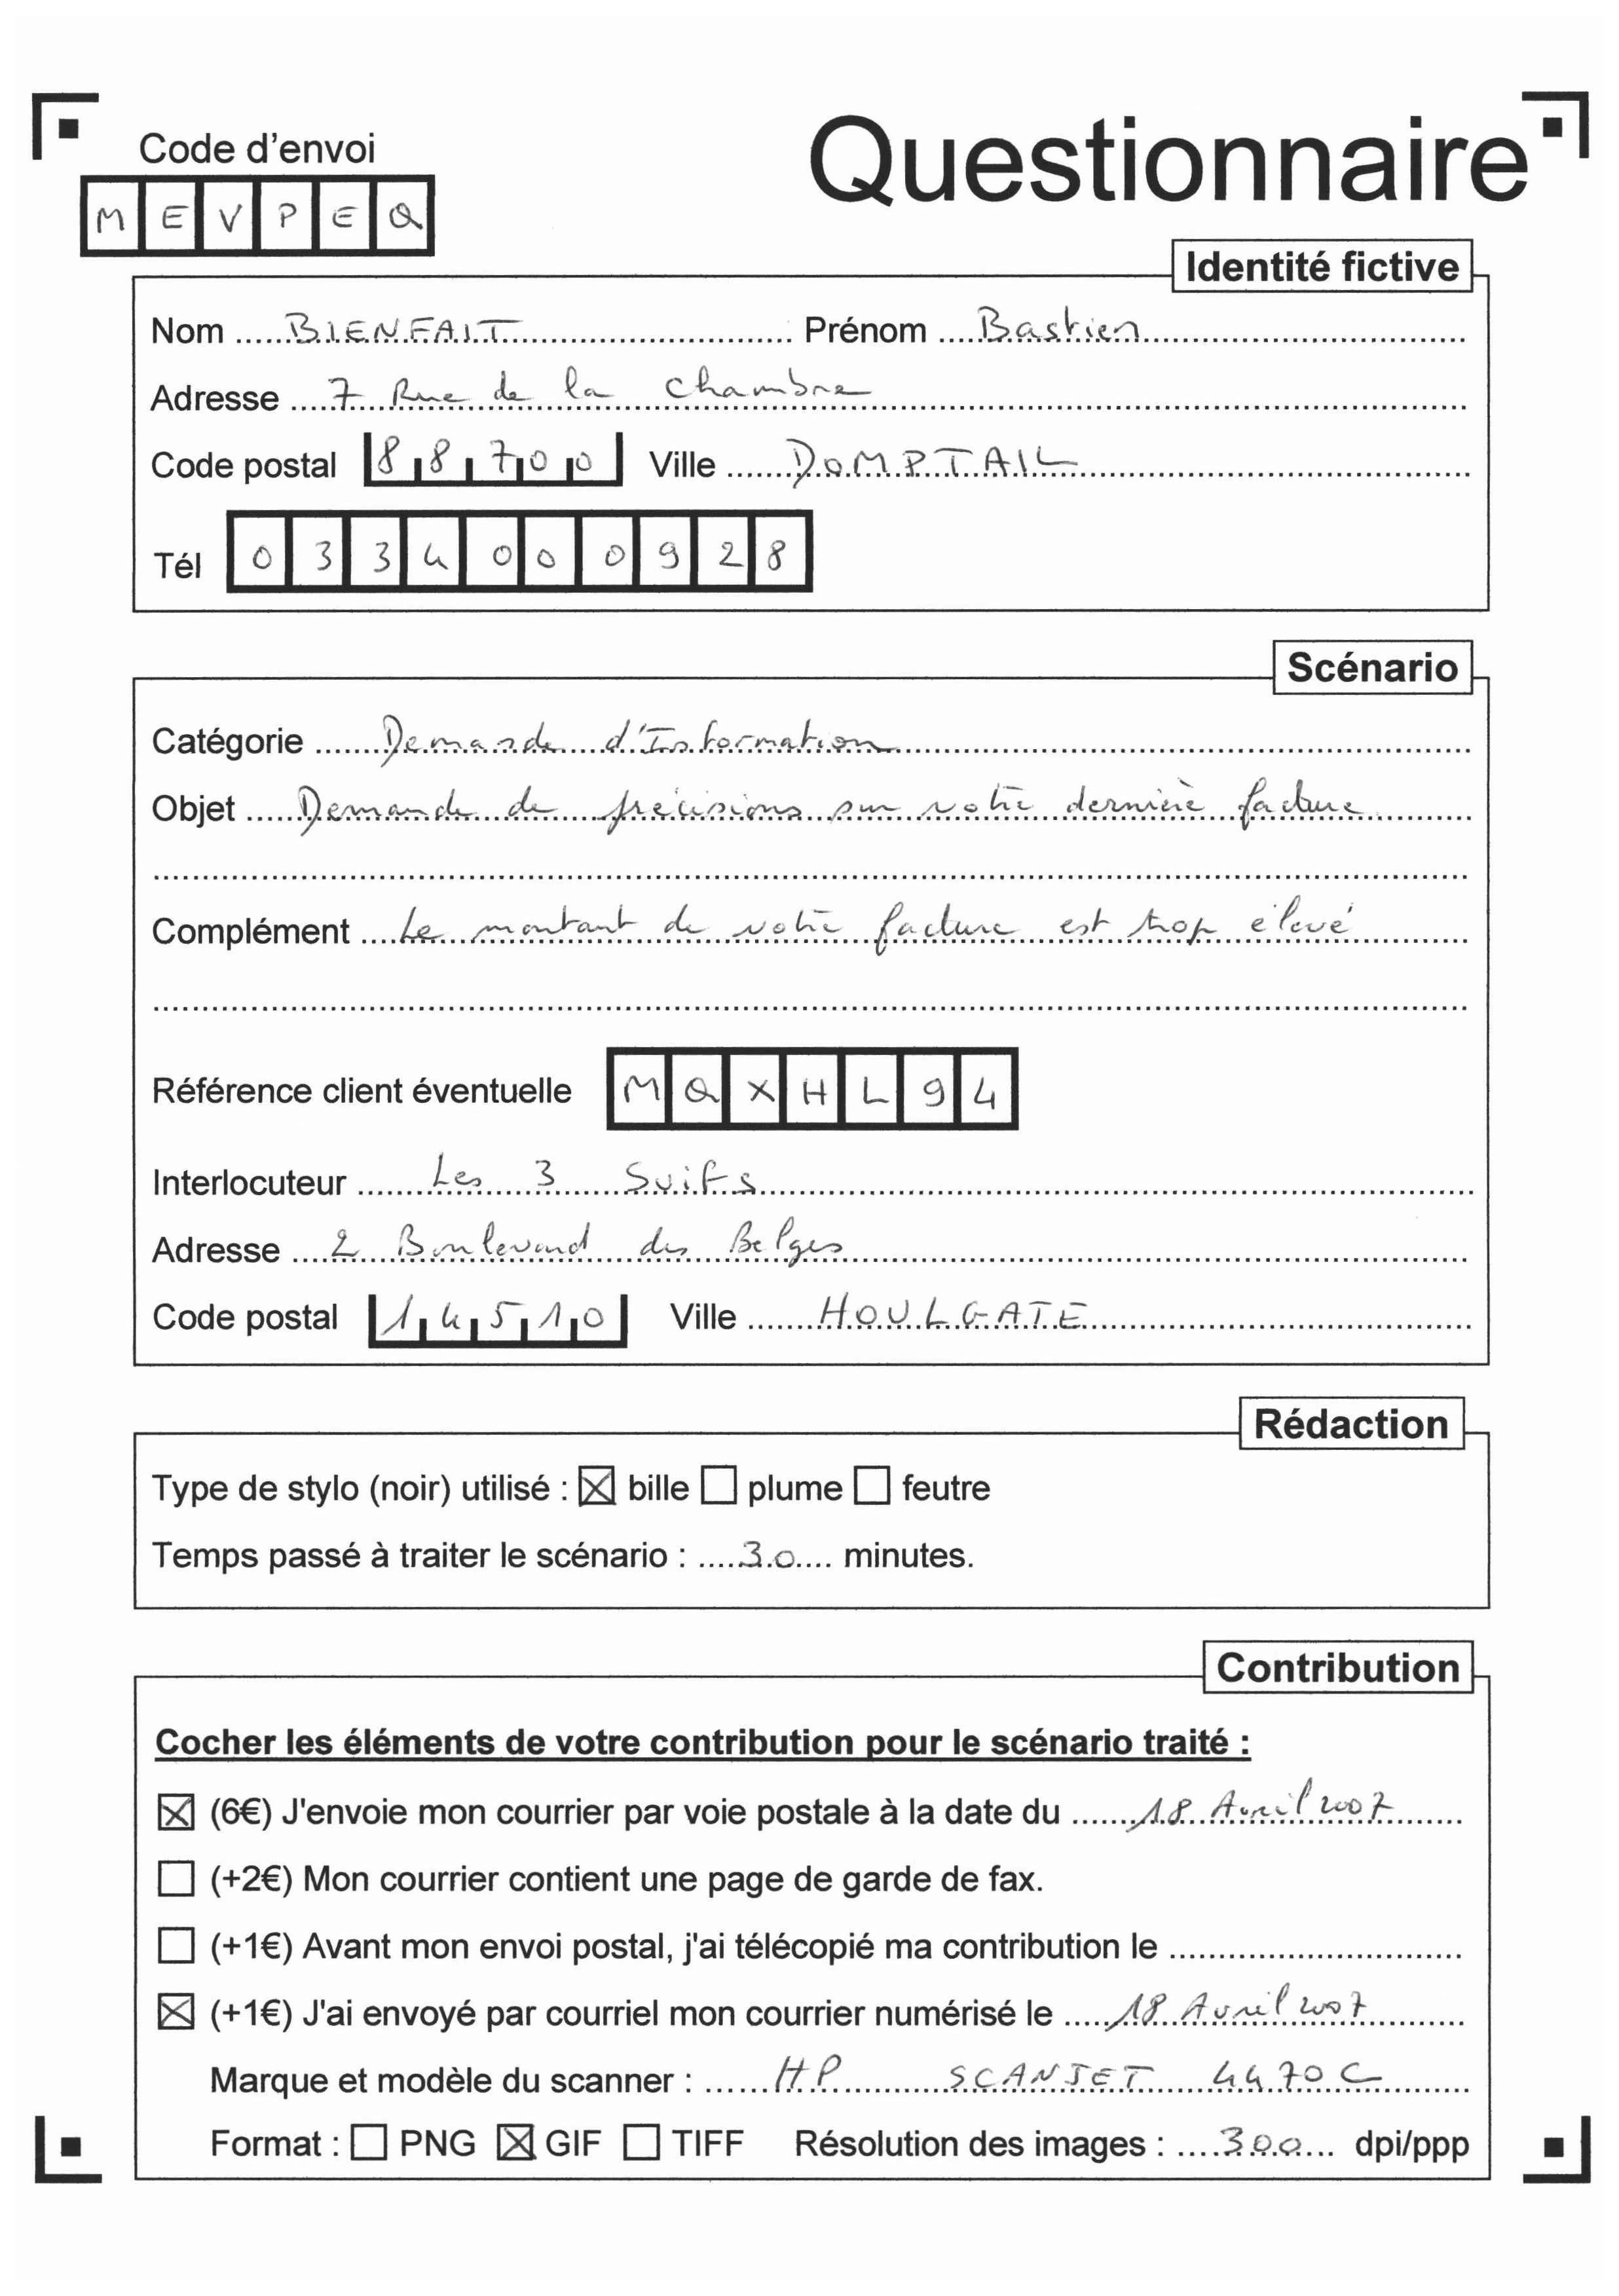 Code d'envoi
Questionnaire
MEVPEQ
Identité fictive
Nom BIENFAIT Prénom Bastien
Adresse 7 Rue de la chambre
Code postal 88700 Ville DOMPTAIL
Tél 0334000928
Scénario
Catégorie Demande d'Information
Objet Demande de précisions sur votre dernière facture
Complément Le montant de votre facture est trop élevé
Référence client éventuelle MQXHL94
Interlocuteur Les 3 Suifs
Adresse 2 Boulevard des Belges
Code postal 14510 Ville HOULGATE
Rédaction
Type de stylo (noir) utilisé : ☒ bille ☐ plume ☐ feutre
Temps passé à traiter le scénario : 30 minutes.
Contribution
Cocher les éléments de votre contribution pour le scénario traité :
☒ (6€) J'envoie mon courrier par voie postale à la date du 18 Avril 2007
☐ (+2€) Mon courrier contient une page de garde de fax.
☐ (+1€) Avant mon envoi postal, j'ai télécopié ma contribution le
☒ (+1€) J'ai envoyé par courriel mon courrier numérisé le 18 Avril 2007
Marque et modèle du scanner : HP SCANJET 4470C
Format : ☐ PNG ☒ GIF ☐ TIFF Résolution des images : 300 dpi/ppp